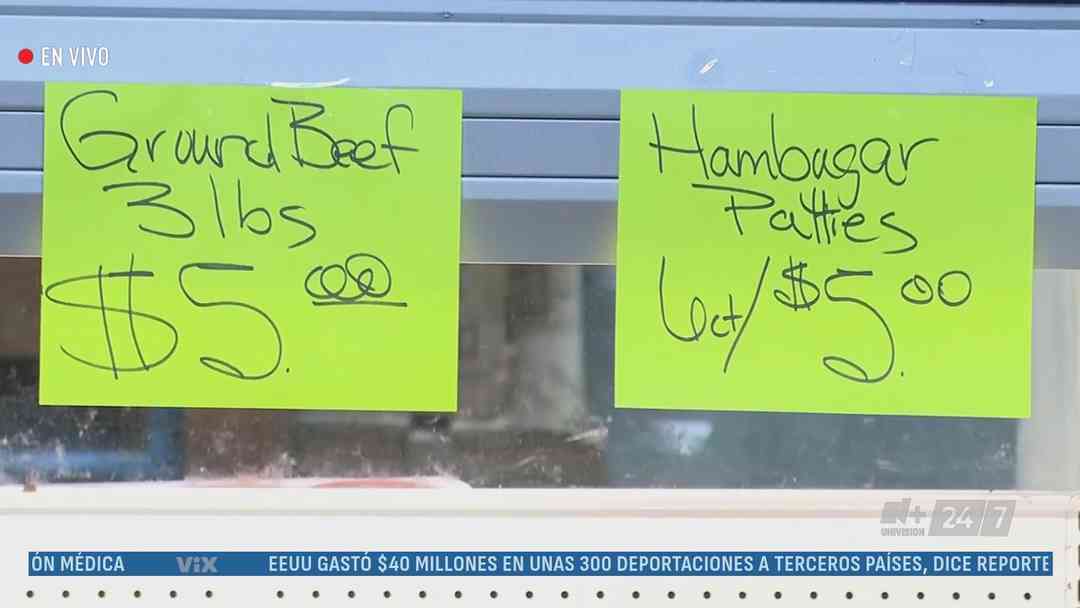 EN VIVO
Ground Beef
3 lbs
$5.00
Hambugar
Patties
6ct/$5.00
N+ 24 7
UNIVISION
ÓN MÉDICA ViX EEUU GASTÓ $40 MILLONES EN UNAS 300 DEPORTACIONES A TERCEROS PAÍSES, DICE REPORTE